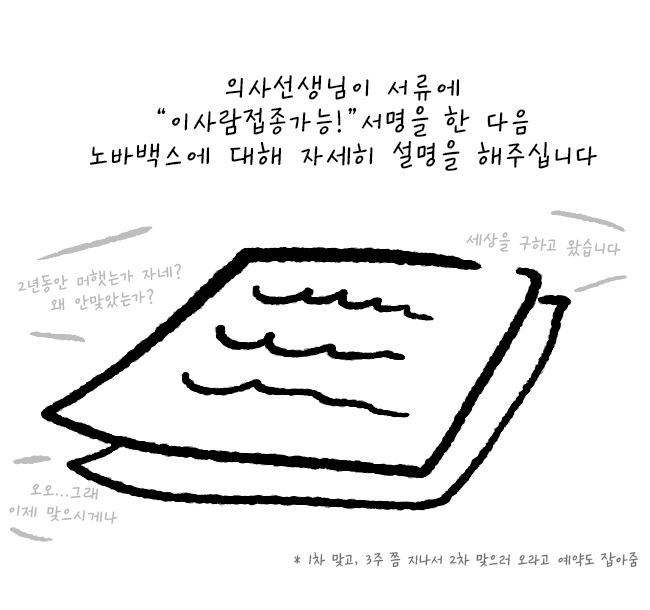 의사선생님이 서류에
“이사람접종가능!”서명을 한 다음
노바백스에 대해 자세히 설명을 해주십니다
세상을 구하고 왔습니다
2년동안 머했는가 자네?
왜 안맞았는가?
오오...그래
이제 맞으시게나
* 1차 맞고, 3주 쯤 지나서 2차 맞으러 오라고 예약도 잡아줌